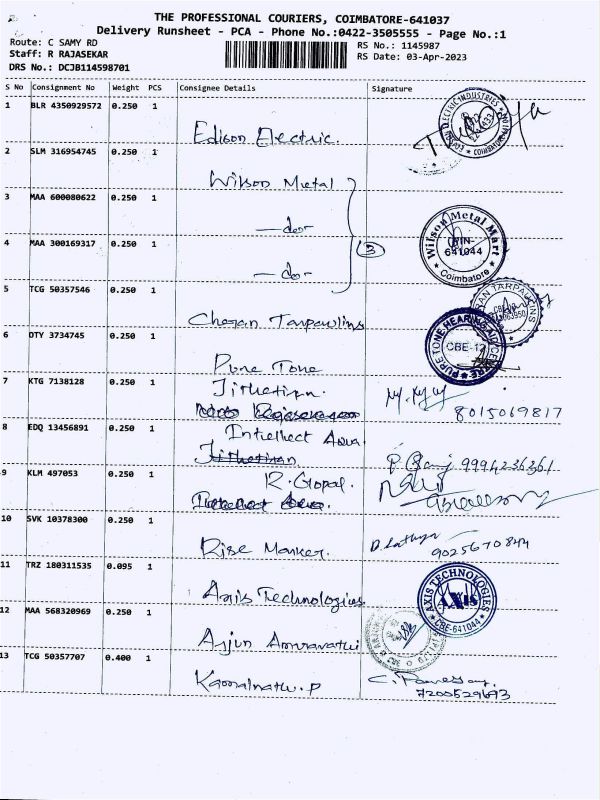 THE PROFESSIONAL COURIERS, COIMBATORE-641037
Delivery Runsheet - PCA - Phone No.:0422-3505555 - Page No.:1
Route: C SAMY RD
Staff: R RAJASEKAR
DRS No.: DCJB114598701
RS No.: 1145987
RS Date: 03-Apr-2023
S No Consignment No Weight PCS Consignee Details Signature
1 BLR 4350929572 0.250 1
Edison Electric.
2 SLM 316954745 0.250 1
Wilson Metal
3 MAA 600080622 0.250 1
—do—
4 MAA 300169317 0.250 1
3
—do—
Wilson Metal Mart
641044
Coimbatore
5 TCG 50357546 0.250 1
Chegan Tarpawlins
6 DTY 3734745 0.250 1
Pure Tone
PURE TONE HEARING AID CENTRE
CBE-12
7 KTG 7138128 0.250 1
Jithethran.
8015069817
8 EDQ 13456891 0.250 1
Intellect Aqua
Jithethran
9994236361
9 KLM 497053 0.250 1
R. Gopal.
10 SVK 10378300 0.250 1
Rise Marker.
D. Lathya
9025670844
11 TRZ 180311535 0.095 1
Axis Technologies
AXIS TECHNOLOGIES
AXIS
CBE-641044
12 MAA 568320969 0.250 1
Arjun Amravathi
13 TCG 50357707 0.400 1
Kamalnath. P
7200529693